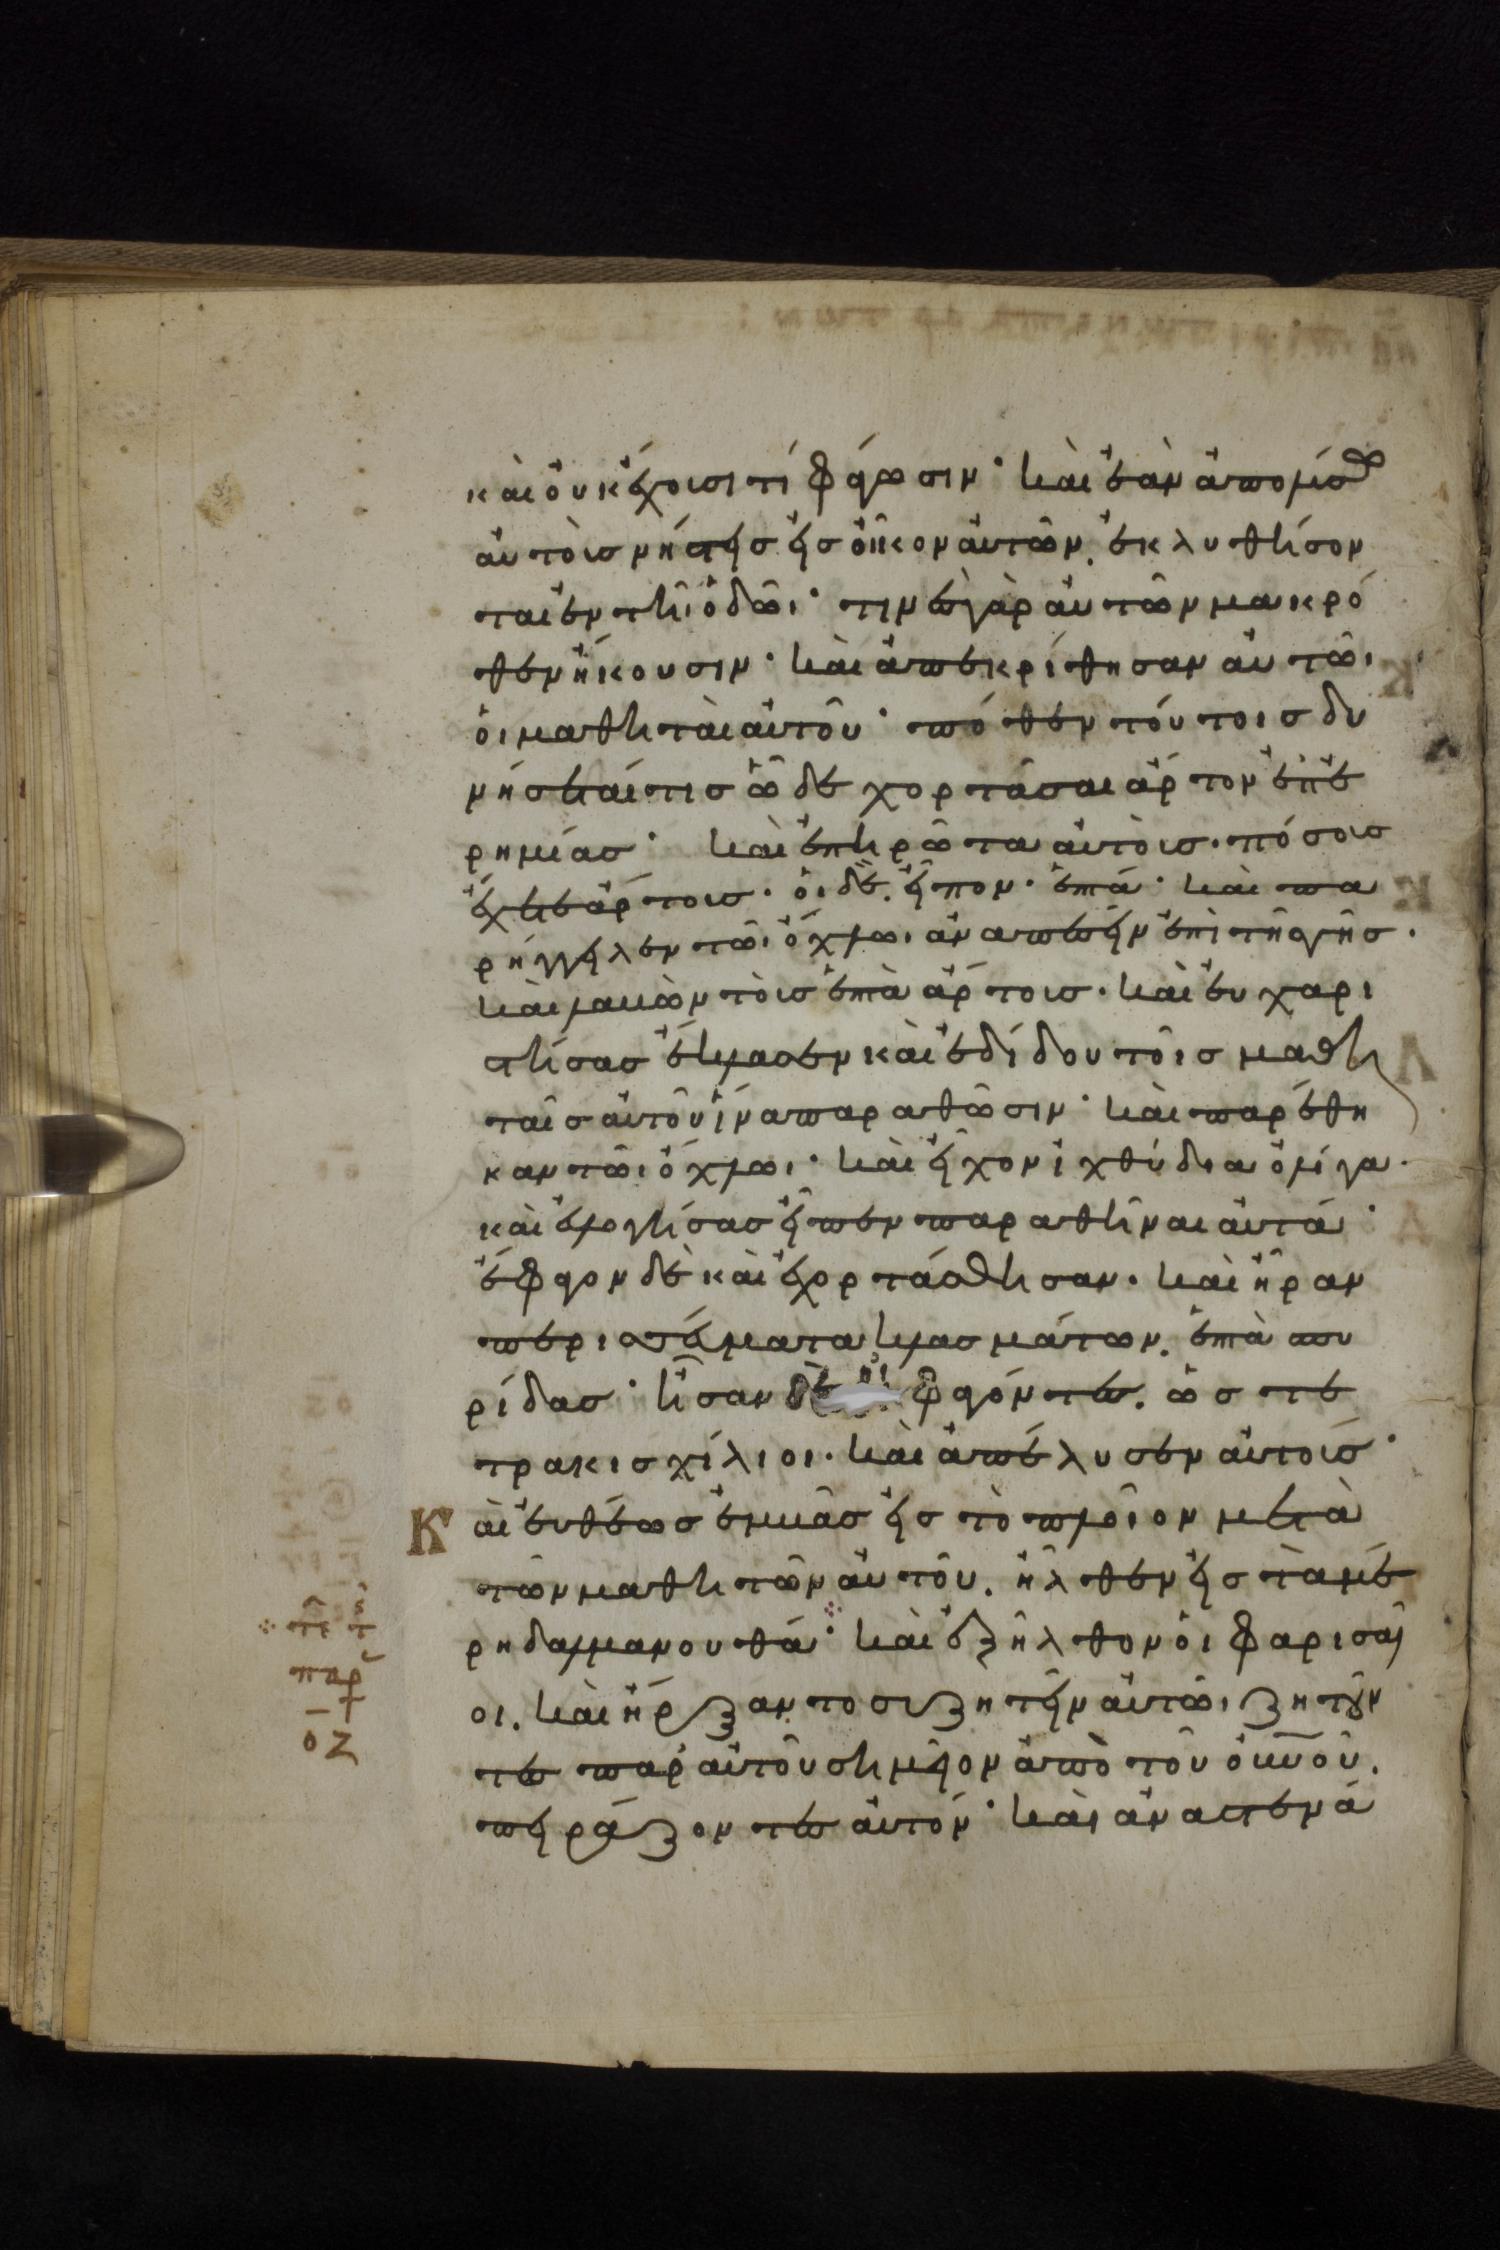 καὶ οὐκ ἔχουσι τί φάγωσιν· καὶ ἐὰν ἀπολύσω
αὐτοὺς νήστεις εἰς οἶκον αὐτῶν. ἐκλυθήσον
ται ἐν τῆι ὁδῶι· τινὲς γὰρ αὐτῶν μακρό
θεν ἥκουσιν· καὶ ἀπεκρίθησαν αὐτῶι
οἱ μαθηταὶ αὐτοῦ· πόθεν τούτους δυ
νήσεταί τις ὧδε χορτάσαι ἄρτον ἐπ' ἐ
ρημίας· καὶ ἐπηρώτα αὐτούς· πόσους
ἔχετε ἄρτους· οἱ δὲ. εἶπον· ἑπτά· καὶ πα
ρήγγειλεν τῶι ὄχλωι ἀναπεσεῖν ἐπὶ τῆς γῆς·
καὶ λαβὼν τοὺς ἑπτὰ ἄρτους· καὶ εὐχαρι
στήσας ἔκλασεν καὶ ἐδίδου τοῖς μαθη
ταῖς αὐτοῦ ἵνα παραθῶσιν· καὶ παρέθη
καν τῶι ὄχλωι· καὶ εἶχον ἰχθύδια ὀλίγα·
καὶ εὐλογήσας εἶπεν παραθῆναι αὐτά·
ἔφαγον δὲ καὶ ἐχορτάσθησαν· καὶ ἦραν
περισσεύματα κλασμάτων. ἑπτὰ σπυ
ρίδας· ἦσαν δὲ οἱ φαγόντες. ὡς τε
τρακισχίλιοι· καὶ ἀπέλυσεν αὐτούς·
Καὶ εὐθέως ἐμβὰς εἰς τὸ πλοῖον μετὰ
τῶν μαθητῶν αὐτοῦ. ἦλθεν εἰς τὰ μέ
ρη δαλμανουθά· καὶ ἐξῆλθον οἱ φαρισαῖ
οι. καὶ ἤρξαντο συζητεῖν αὐτῶι ζητοῦν
τες παρ' αὐτοῦ σημεῖον ἀπὸ τοῦ οὐνοῦ.
πειράζοντες αὐτόν· καὶ ἀναστενά
οζ